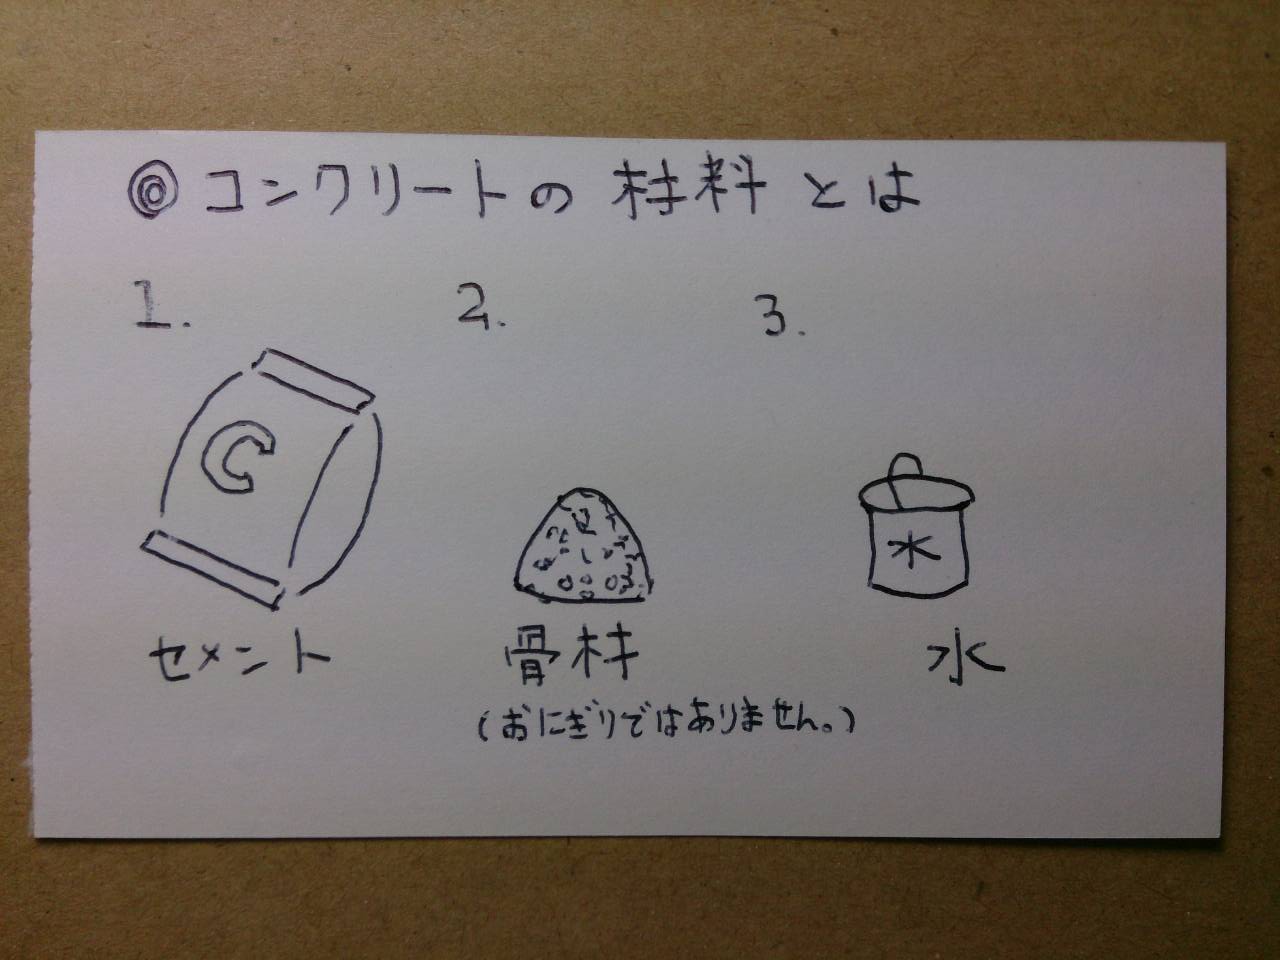 ◎コンクリートの材料とは
1. 2. 3.
C
水
セメント 骨材 水
(おにぎりではありません。)